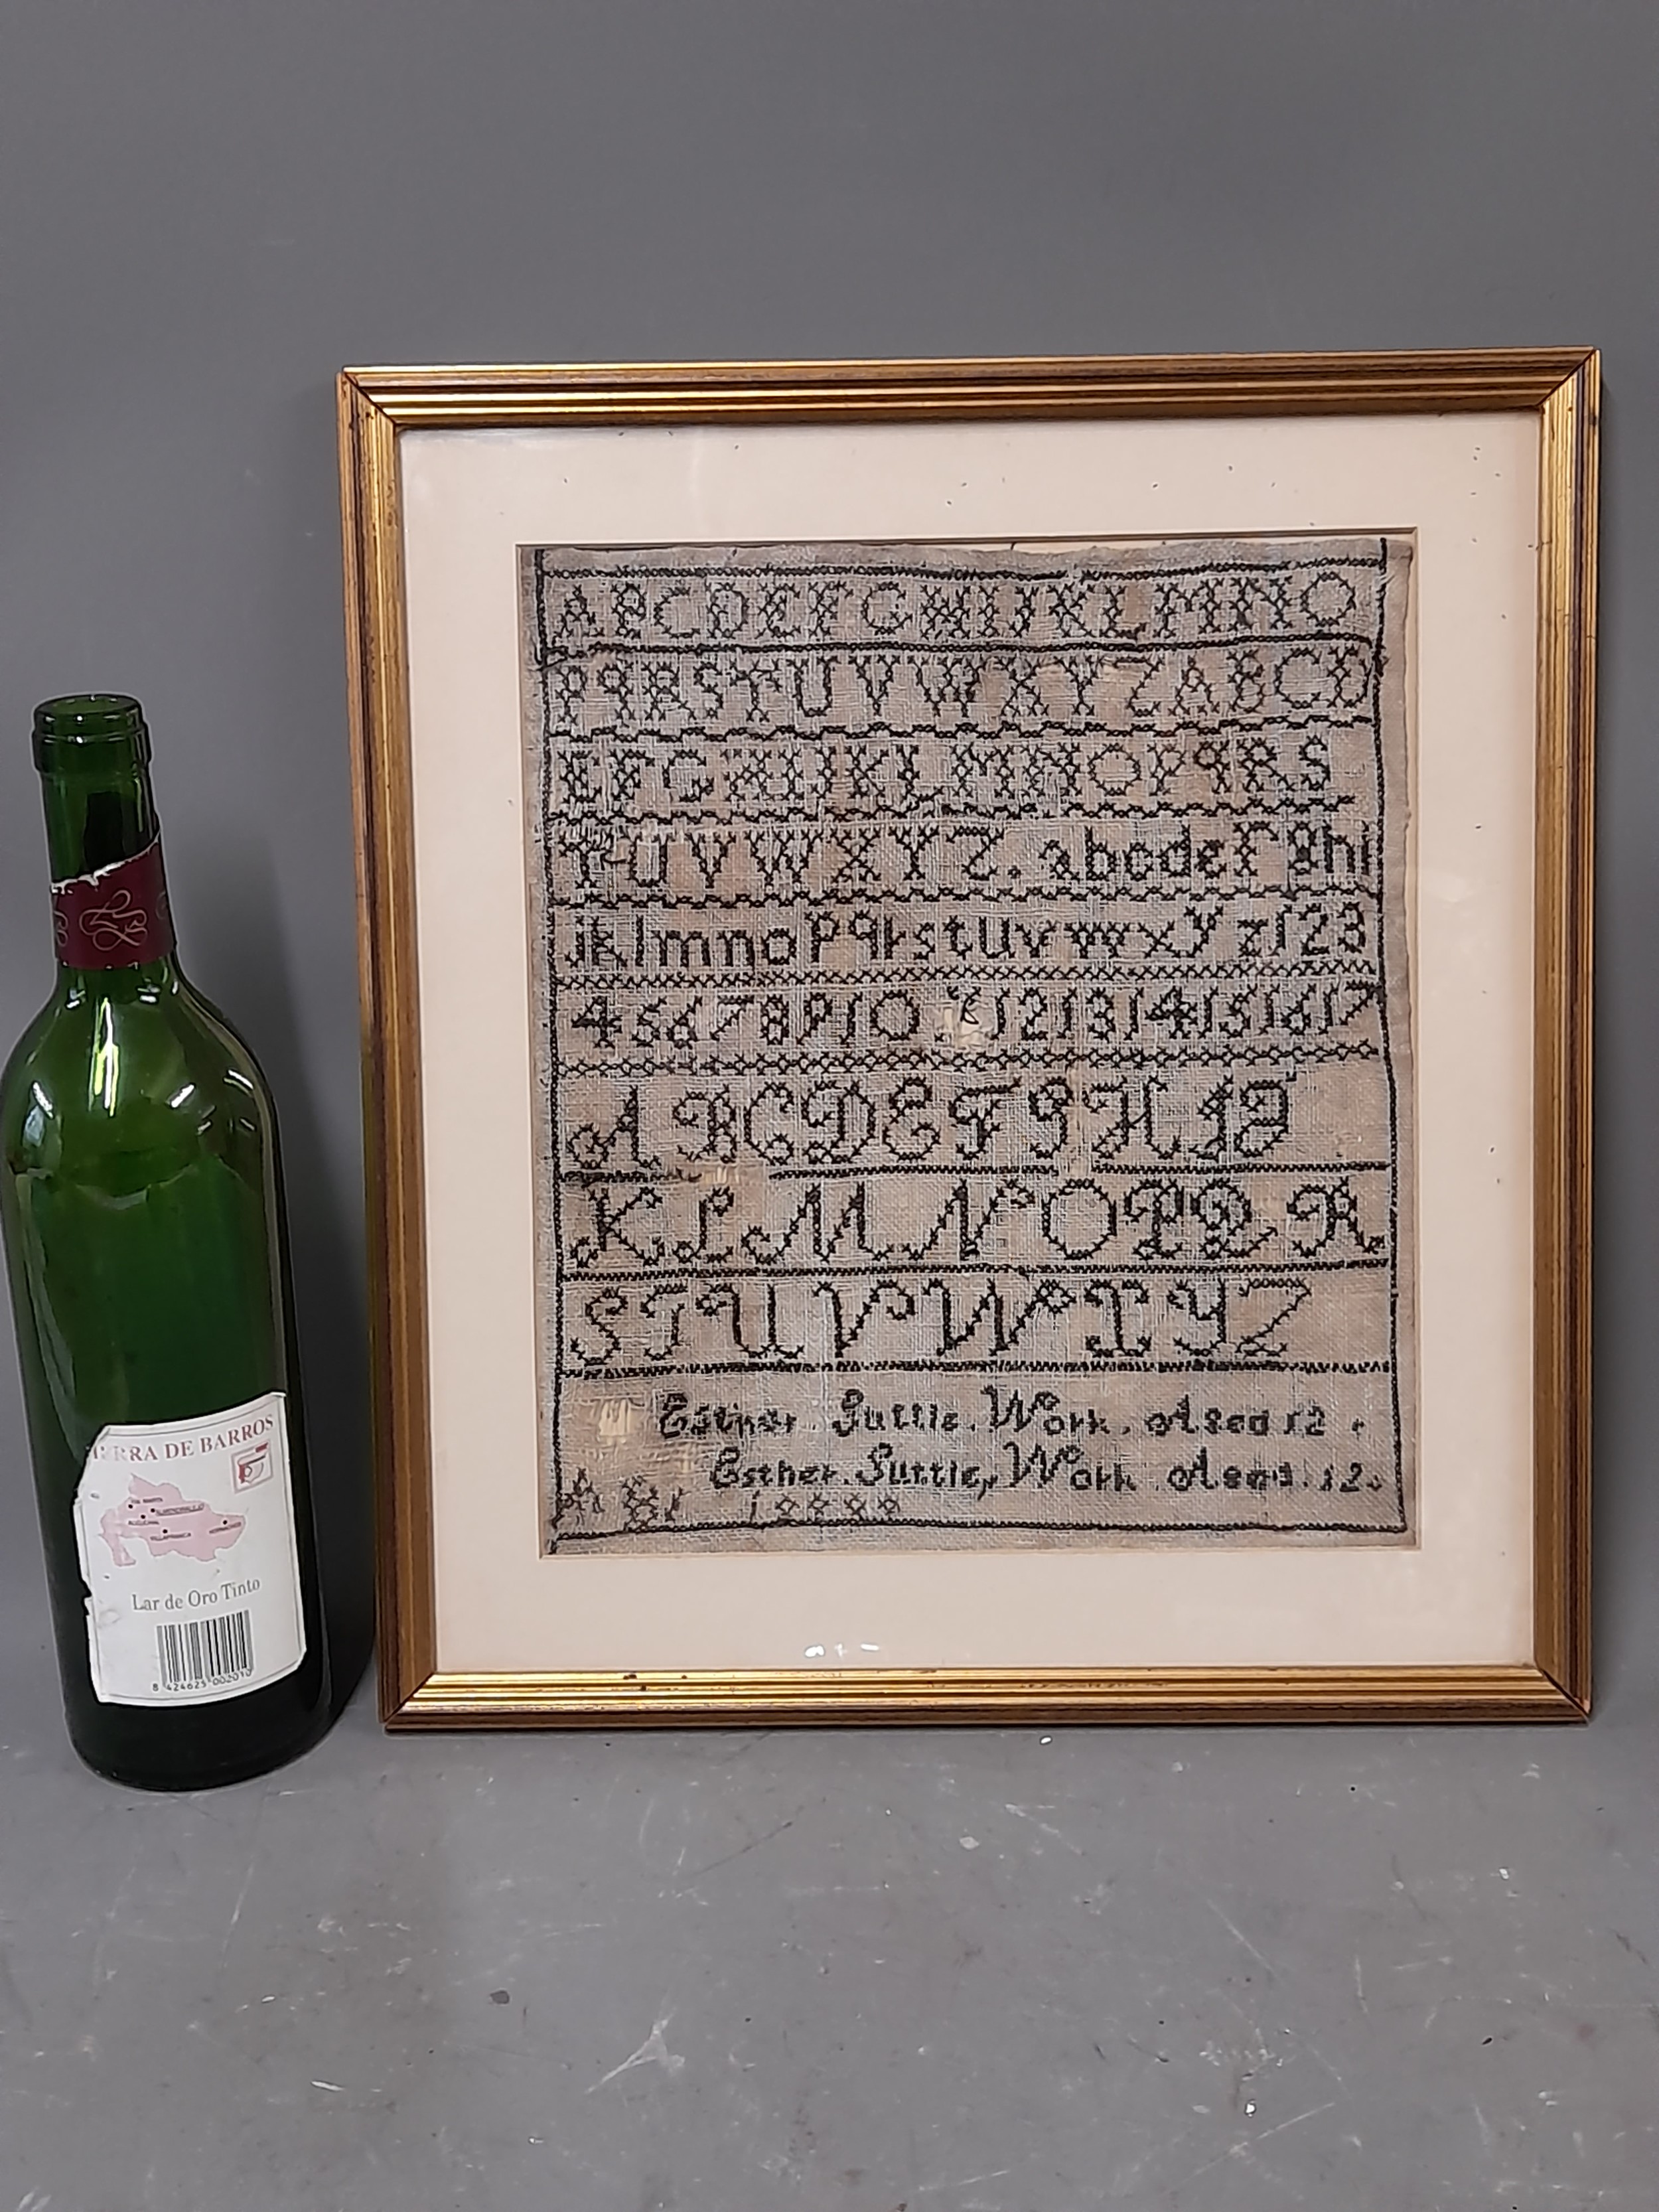 ABCDEFGHIJKLMNO
PQRSTUVWXYZABCD
EFGHIJKLMNOPQRS
TUVWXYZ.abcdefghi
jklmnopqrstuvwxyz123
45678910 121314151617
ABCDEFGHIJ
KLMNOPQR
STUVWXYZ
Esther. Suttle. Work. Aged 12.
Esther. Suttle, Work Aged. 12.
RRA DE BARROS
Lar de Oro Tinto
8 424625 002010